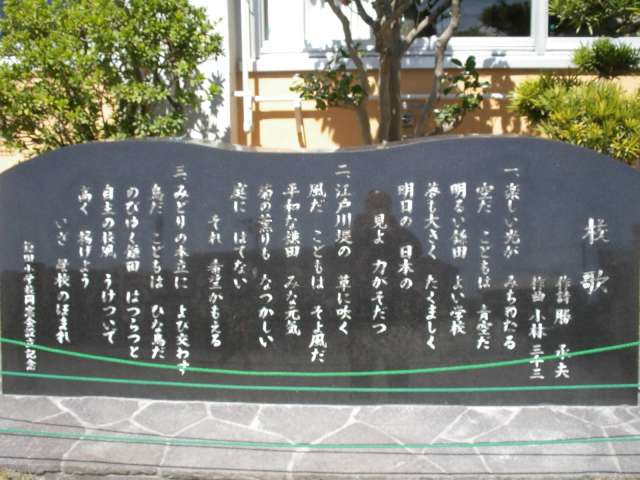 校歌
作詩 勝 承夫
作曲 小林 三千三
一、楽しい光が みちわたる
空だ こどもは 青空だ
明るい鎌田 よい学校
夢も大きく たくましく
明日の 日本の
見よ 力がそだつ
二、江戸川堤の 草に咲く
風だ こどもは そよ風だ
平和な鎌田 みな元気
菊の薫りも なつかしい
庭に はてない
それ 希望がもえる
三、みどりの木立に よび交わす
鳥だ こどもは ひな鳥だ
のびゆく鎌田 はつらつと
自主の校風 うけついで
高く 揚げよう
いざ 学校のほまれ